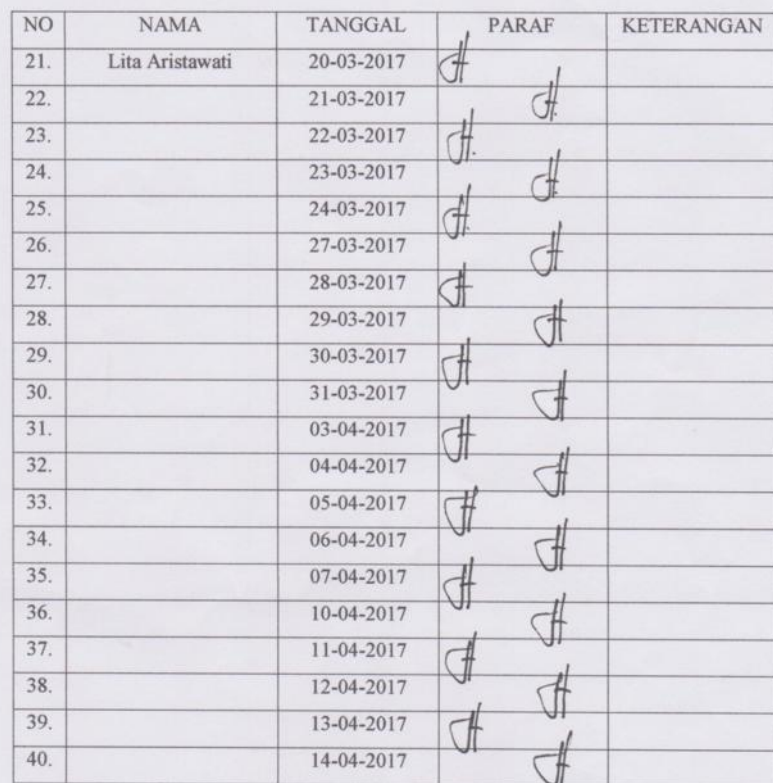 NO NAMA TANGGAL PARAF KETERANGAN
21. Lita Aristawati 20-03-2017
22. 21-03-2017
23. 22-03-2017
24. 23-03-2017
25. 24-03-2017
26. 27-03-2017
27. 28-03-2017
28. 29-03-2017
29. 30-03-2017
30. 31-03-2017
31. 03-04-2017
32. 04-04-2017
33. 05-04-2017
34. 06-04-2017
35. 07-04-2017
36. 10-04-2017
37. 11-04-2017
38. 12-04-2017
39. 13-04-2017
40. 14-04-2017